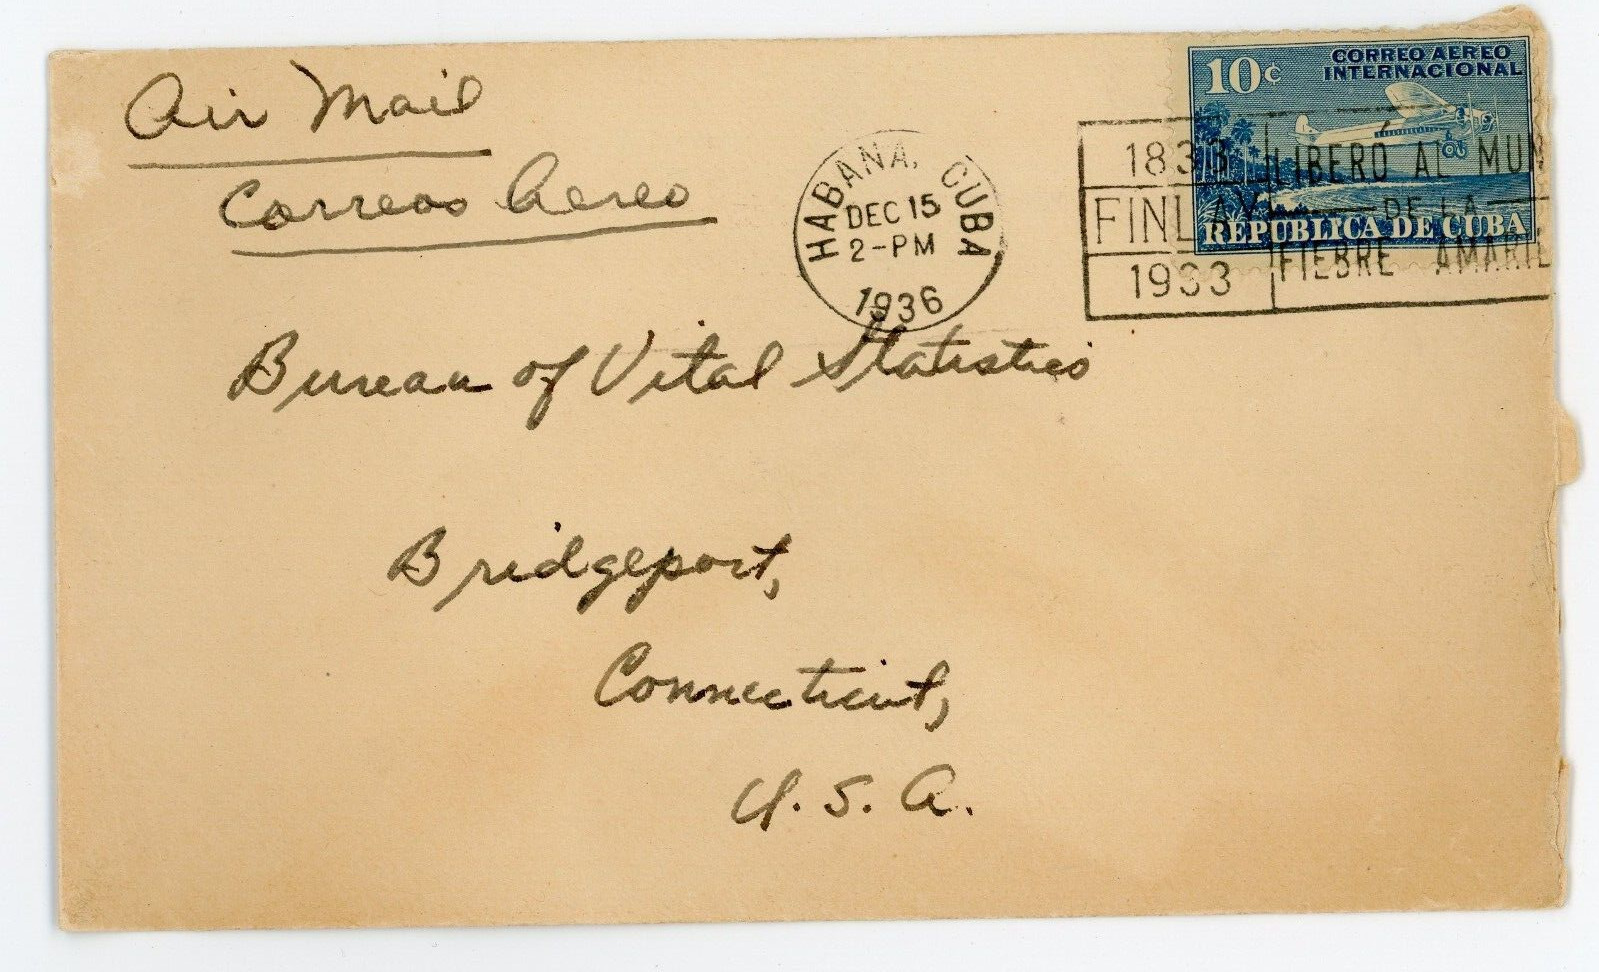 Air Mail
Correos Aereo
HABANA, CUBA
DEC 15
2-PM
1936
1833
FINLAY
1933
LIBERÓ AL MUN
DE LA
FIEBRE AMARIL
10¢
CORREO AEREO
INTERNACIONAL
REPUBLICA DE CUBA
Bureau of Vital Statistics
Bridgeport,
Connecticut,
U. S. A.